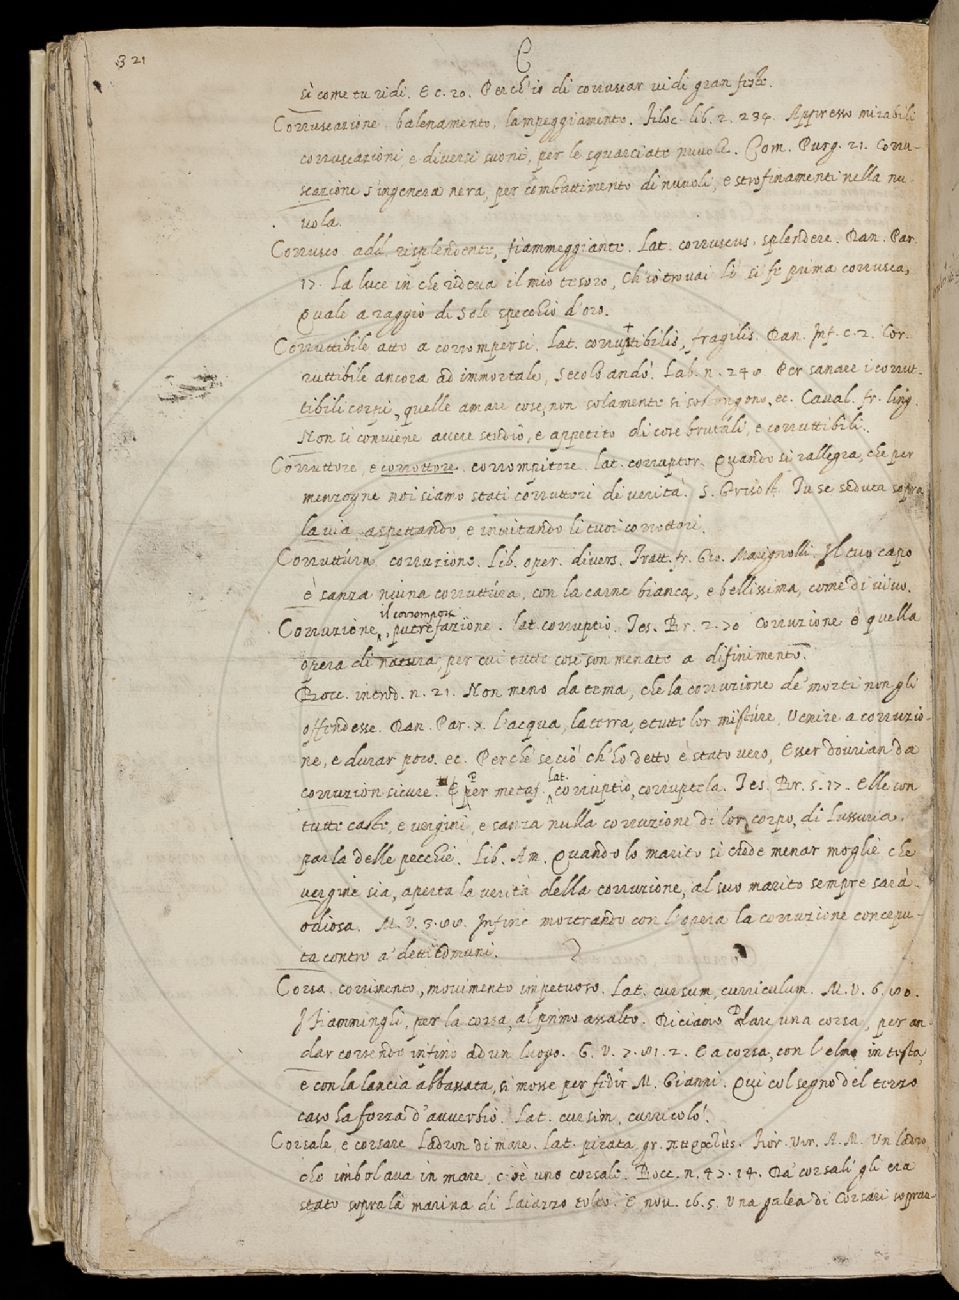 321
C
sì come tu ridi. E c. 20. Perch'io di corruscar vidi gran feste.
Corruscazione. balenamento, lampeggiamento. Filoc. lib. 2. 234. Appresso mirabili
corruscazioni, e diversi suoni, per le squarciate nuvole. Com. Purg. 21. Corru-
scazione s'ingenera nera, per combattimento di nuvoli, e strofinamenti nella nu-
vola.
Corrusco add. risplendente, fiammeggiante. Lat. corruscus, splendere. Dan. Par.
17. La luce in che rideva il mio tesoro, Ch'io trovai lì si fe prima corrusca,
Quale a raggio di Sole specchio d'oro.
Corruttibile atto a corrompersi. Lat. corruptibilis, fragilis. Dan. Inf. c. 2. Cor-
ruttibile ancora ad immortale, secolo andò. Lab. n. 240 Per sanare i corrut-
tibili corpi, quelle amare cose, non solamente si sostengono, ec. Caval. fr. ling.
Non si conviene avere studio, e appetito di cose brutali, e corruttibili.
Corruttore, e corrottore. corrompitore. lat. corruptor. Quando si rallegra, che per
menzogne noi siamo stati corruttori di verità. S. Grisost. Tu se seduta sopra
la via aspettando, e invitando li tuoi corrottori.
Corruttúra. corruzione. Lib. oper. divers. Tratt. fr. Gio. Marignolli. Il suo capo
è sanza niuna corruttúra, con la carne bianca, e bellissima, come di vivo.
il corrompersi
Corruzione, putrefazione. lat. corruptio. Tes. Br. 2. 30 Corruzione è quella
opera di natura, per cui tutte cose son menate a difinimento.
Bocc. introd. n. 21. Non meno da tema, che la corruzione de' morti non gli
offendesse. Dan. Par. 7. l'acqua, la terra, e tutte lor mistúre, Venire a corruzio-
ne, e durar poco. ec. Perchè se ciò ch'ho detto è stato vero, Esser dovrian da
corruzion sicure. E per metaf. lat. corruptio, corruptela. Tes. Br. 5. 17. Elle son
tutte caste, e vergini, e sanza nulla corruzione di lor corpo, di lussuria.
parla delle pecchie. Lib. Am. Quando lo marito si crede menar moglie che
vergine sia, aperta la verità della corruzione, al suo marito sempre sarà
odiosa. M. V. Infine mostrando con l'opera la corruzione concepu-
ta contro a' detti comuni.
Corsa. corrimento, movimento impetuoso. Lat. cursum, curriculum. M. V. 6.
I Fiamminghi, per la corsa, al primo assalto. Diciamo Dare una corsa, per an-
dar correndo infino ad un luogo. G. V. 7. E a corsa, con l'elmo in testa,
e con la lancia abbassata, si mosse per fidir M. Gianni. Qui col segno del terzo
caso ha forza d'avverbio. Lat. cursim, curricolo.
Corsale, e corsare Ladron di mare. Lat. pirata, gr. Fior. Vir. A. M. Un ladro,
che imbolava in mare, cioè uno corsale. Bocc. n. 47. 14. Da' corsali gli era
stato sopra la marina di Laiazzo tolto. E nov. 16. 5. Una galea di Corsari soprav-